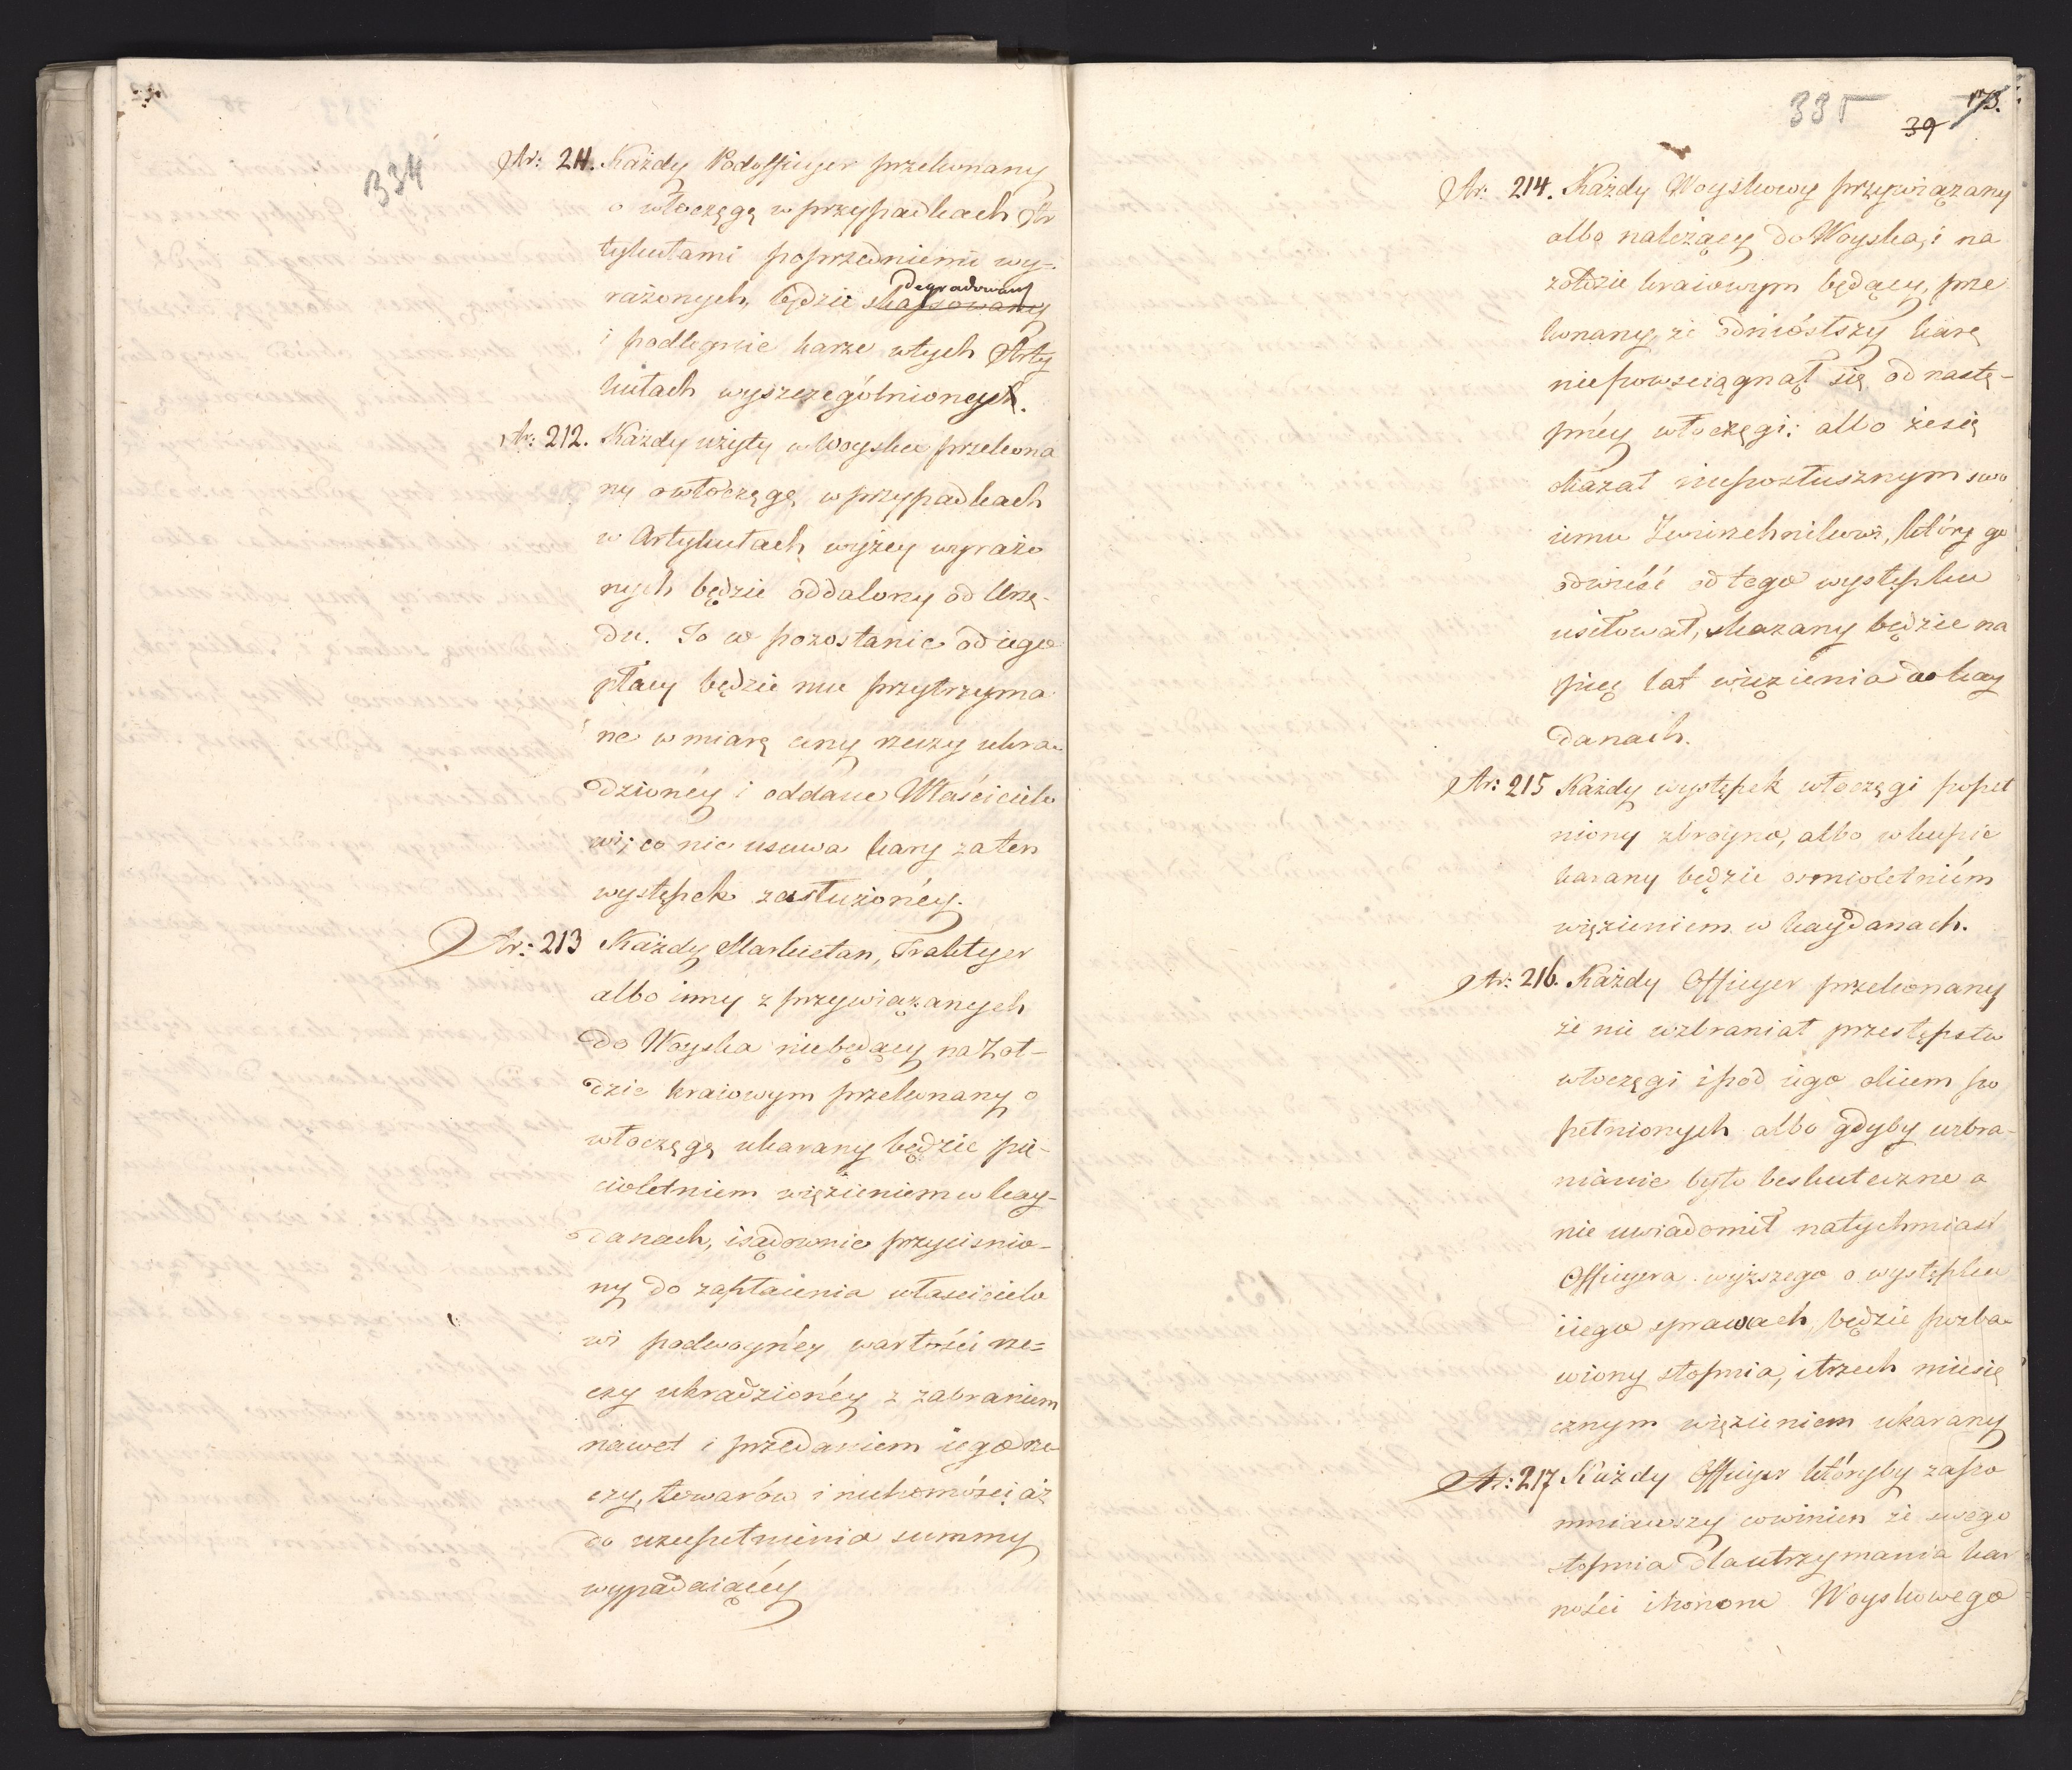 334
Ar: 211. Każdy Podofficyer przekonany
o włoczęgę w przypadkach Ar
tykułami poprzedniemi wy=
rażonych, będzie skassowany degradowany
i podlegnie karze w tych Arty
kułach wyszczególnionych.
Ar: 212. Każdy użyty w Woysku przekona
ny o włoczęgę w przypadkach
w Artykułach wyżey wyrażo
nych będzie oddalony od Urzę-
du. To co pozostanie od iego
płacy będzie mu przytrzyma
ne w miarę ceny rzeczy ukra-
dzionéy i oddane Właścicielo
wi, co nie usuwa kary za ten
występek zasłużonéy.
Ar: 213 Każdy Markietan, Traktyer
albo inny z przywiązanych
do Woyska niebędący na żoł-
dzie kraiowym przekonany o
włoczęgę ukarany będzie pię-
cioletniem więzieniem w kay-
danach, i sądownie przyciśnio-
ny do zapłacenia właścicielo
wi podwoynéy wartości rze=
czy ukradzionéy z zabraniem
nawet i przedaniem iego rze
czy, towarów i ruchomości aż
do uzupełnienia summy
wypadaiącéy
335
39
173.
Ar: 214. Każdy Woyskowy przywiązany
albo należący do Woyska, i na
żołdzie kraiowym będący, prze
konany, że odniósłszy karę
niepowsciągnął się od nastę-
pnéy włoczęgi; albo że się
okazał nieposłusznym swo
iemu Zwierzchnikowi, który go
odwieść od tego występku
usiłował, skazany będzie na
pięć lat więzienia w kay
danach.
Ar: 215 Każdy występek włoczęgi popeł
niony zbroyno, albo w kupie
karany będzie osmioletniém
więzieniem w kaydanach.
Ar: 216. Każdy Officyer przekonany
że nie wzbraniał przestępstw
włoczęgi i pod iego okiem po
pełnionych albo gdyby wzbra-
nianie było beskuteczne a
nie uwiadomił natychmiast
Officyera wyższego o występku
i iego sprawcach, będzie pozba-
wiony stopnia, i trzech miesię
cznym więzieniem ukarany
Ar: 217 Każdy Officyer któryby zapo
mniawszy co winien ze swego
stopnia dla utrzymania kar
ności i honoru Woyskowego